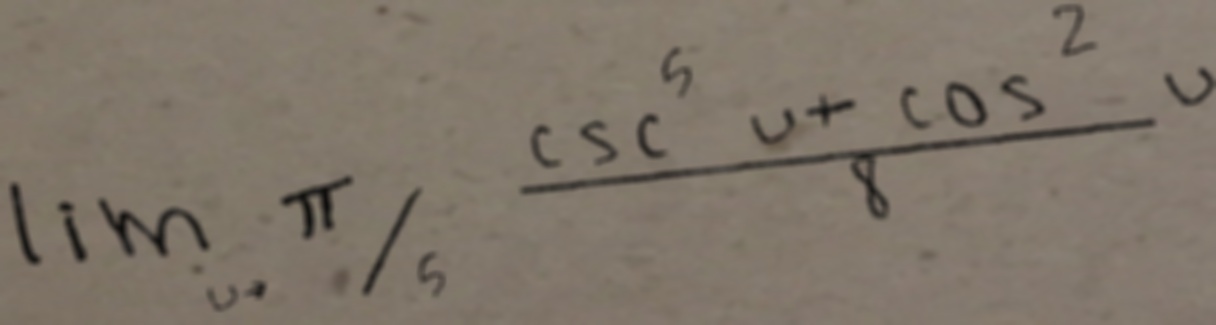 \lim_{u \to \pi/5} \frac{\csc^5 u + \cos^2 u}{8}